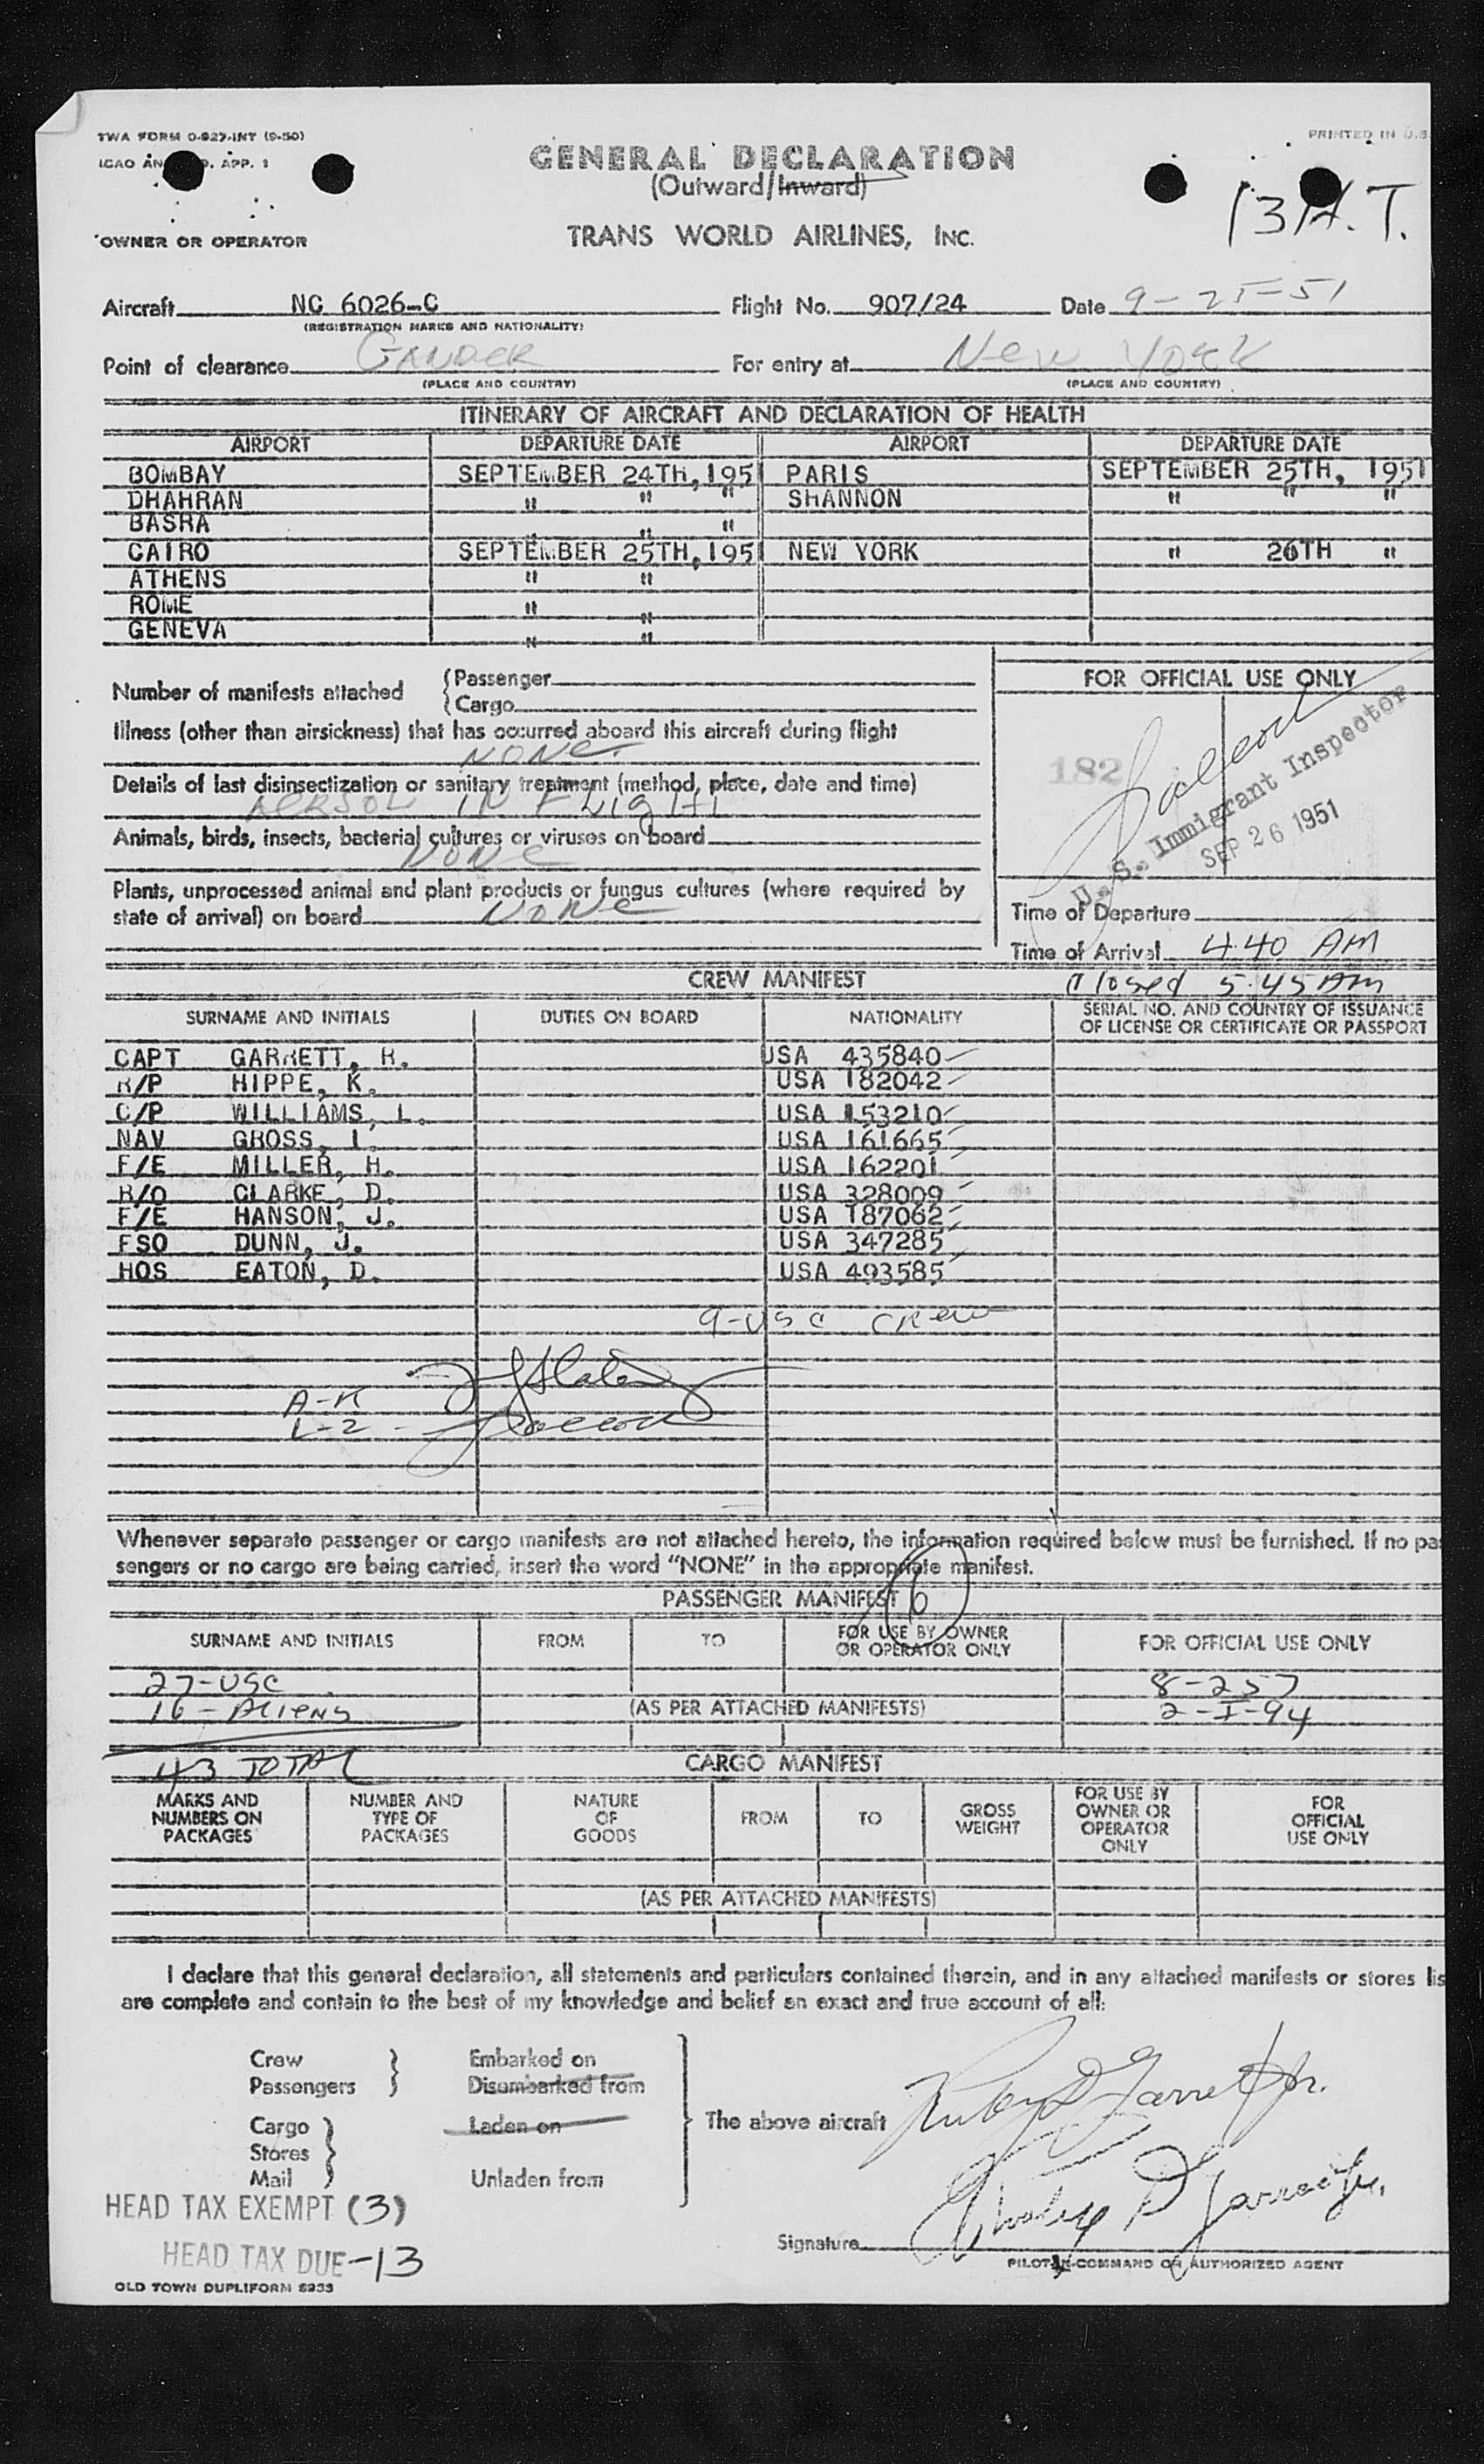 TWA FORM 0-927-INT (9-50)
PRINTED IN U.S.
ICAO APP. 1
GENERAL DECLARATION
(Outward/Inward)
13 H.T.
OWNER OR OPERATOR
TRANS WORLD AIRLINES, INC.
Aircraft NC 6026-C Flight No. 907/24 Date 9-25-51
(REGISTRATION MARKS AND NATIONALITY)
Point of clearance GANDER For entry at New York
(PLACE AND COUNTRY) (PLACE AND COUNTRY)
ITINERARY OF AIRCRAFT AND DECLARATION OF HEALTH
AIRPORT DEPARTURE DATE AIRPORT DEPARTURE DATE
BOMBAY SEPTEMBER 24TH, 195 PARIS SEPTEMBER 25TH, 1951
DHAHRAN " " " SHANNON " " "
BASRA " " "
CAIRO SEPTEMBER 25TH, 195 NEW YORK " 26TH "
ATHENS " "
ROME " "
GENEVA " "
Number of manifests attached {Passenger
{Cargo
FOR OFFICIAL USE ONLY
Illness (other than airsickness) that has occurred aboard this aircraft during flight
NONE
Details of last disinsectization or sanitary treatment (method, place, date and time)
AERSOL IN FLIGHT
Animals, birds, insects, bacterial cultures or viruses on board
NONE
Plants, unprocessed animal and plant products or fungus cultures (where required by
state of arrival) on board NONE
182
U. S. Immigrant Inspector
SEP 26 1951
Time of Departure
Time of Arrival 4:40 AM
Closed 5:45 AM
CREW MANIFEST
SURNAME AND INITIALS DUTIES ON BOARD NATIONALITY SERIAL NO. AND COUNTRY OF ISSUANCE
OF LICENSE OR CERTIFICATE OR PASSPORT
CAPT GARRETT, R. USA 435840
R/P HIPPE, K. USA 182042
C/P WILLIAMS, L. USA 153210
NAV GROSS, I. USA 161665
F/E MILLER, H. USA 162201
R/O CLARKE, D. USA 328009
F/E HANSON, J. USA 187062
FSO DUNN, J. USA 347285
HOS EATON, D. USA 493585
9-USC CREW
A-K
L-Z
Whenever separate passenger or cargo manifests are not attached hereto, the information required below must be furnished. If no pas
sengers or no cargo are being carried, insert the word "NONE" in the appropriate manifest.
PASSENGER MANIFEST 6
SURNAME AND INITIALS FROM TO FOR USE BY OWNER
OR OPERATOR ONLY FOR OFFICIAL USE ONLY
27-USC 8-257
16-Aliens (AS PER ATTACHED MANIFESTS) 2-I-94
43 TOTAL
CARGO MANIFEST
MARKS AND
NUMBERS ON
PACKAGES
NUMBER AND
TYPE OF
PACKAGES
NATURE
OF
GOODS
FROM
TO
GROSS
WEIGHT
FOR USE BY
OWNER OR
OPERATOR
ONLY
FOR
OFFICIAL
USE ONLY
(AS PER ATTACHED MANIFESTS)
I declare that this general declaration, all statements and particulars contained therein, and in any attached manifests or stores lis
are complete and contain to the best of my knowledge and belief an exact and true account of all:
Crew
Passengers
Embarked on
Disembarked from
Cargo
Stores
Mail
Laden on
Unladen from
The above aircraft
HEAD TAX EXEMPT (3)
HEAD TAX DUE-13
Signature
PILOT-IN-COMMAND OR AUTHORIZED AGENT
OLD TOWN DUPLIFORM 5933